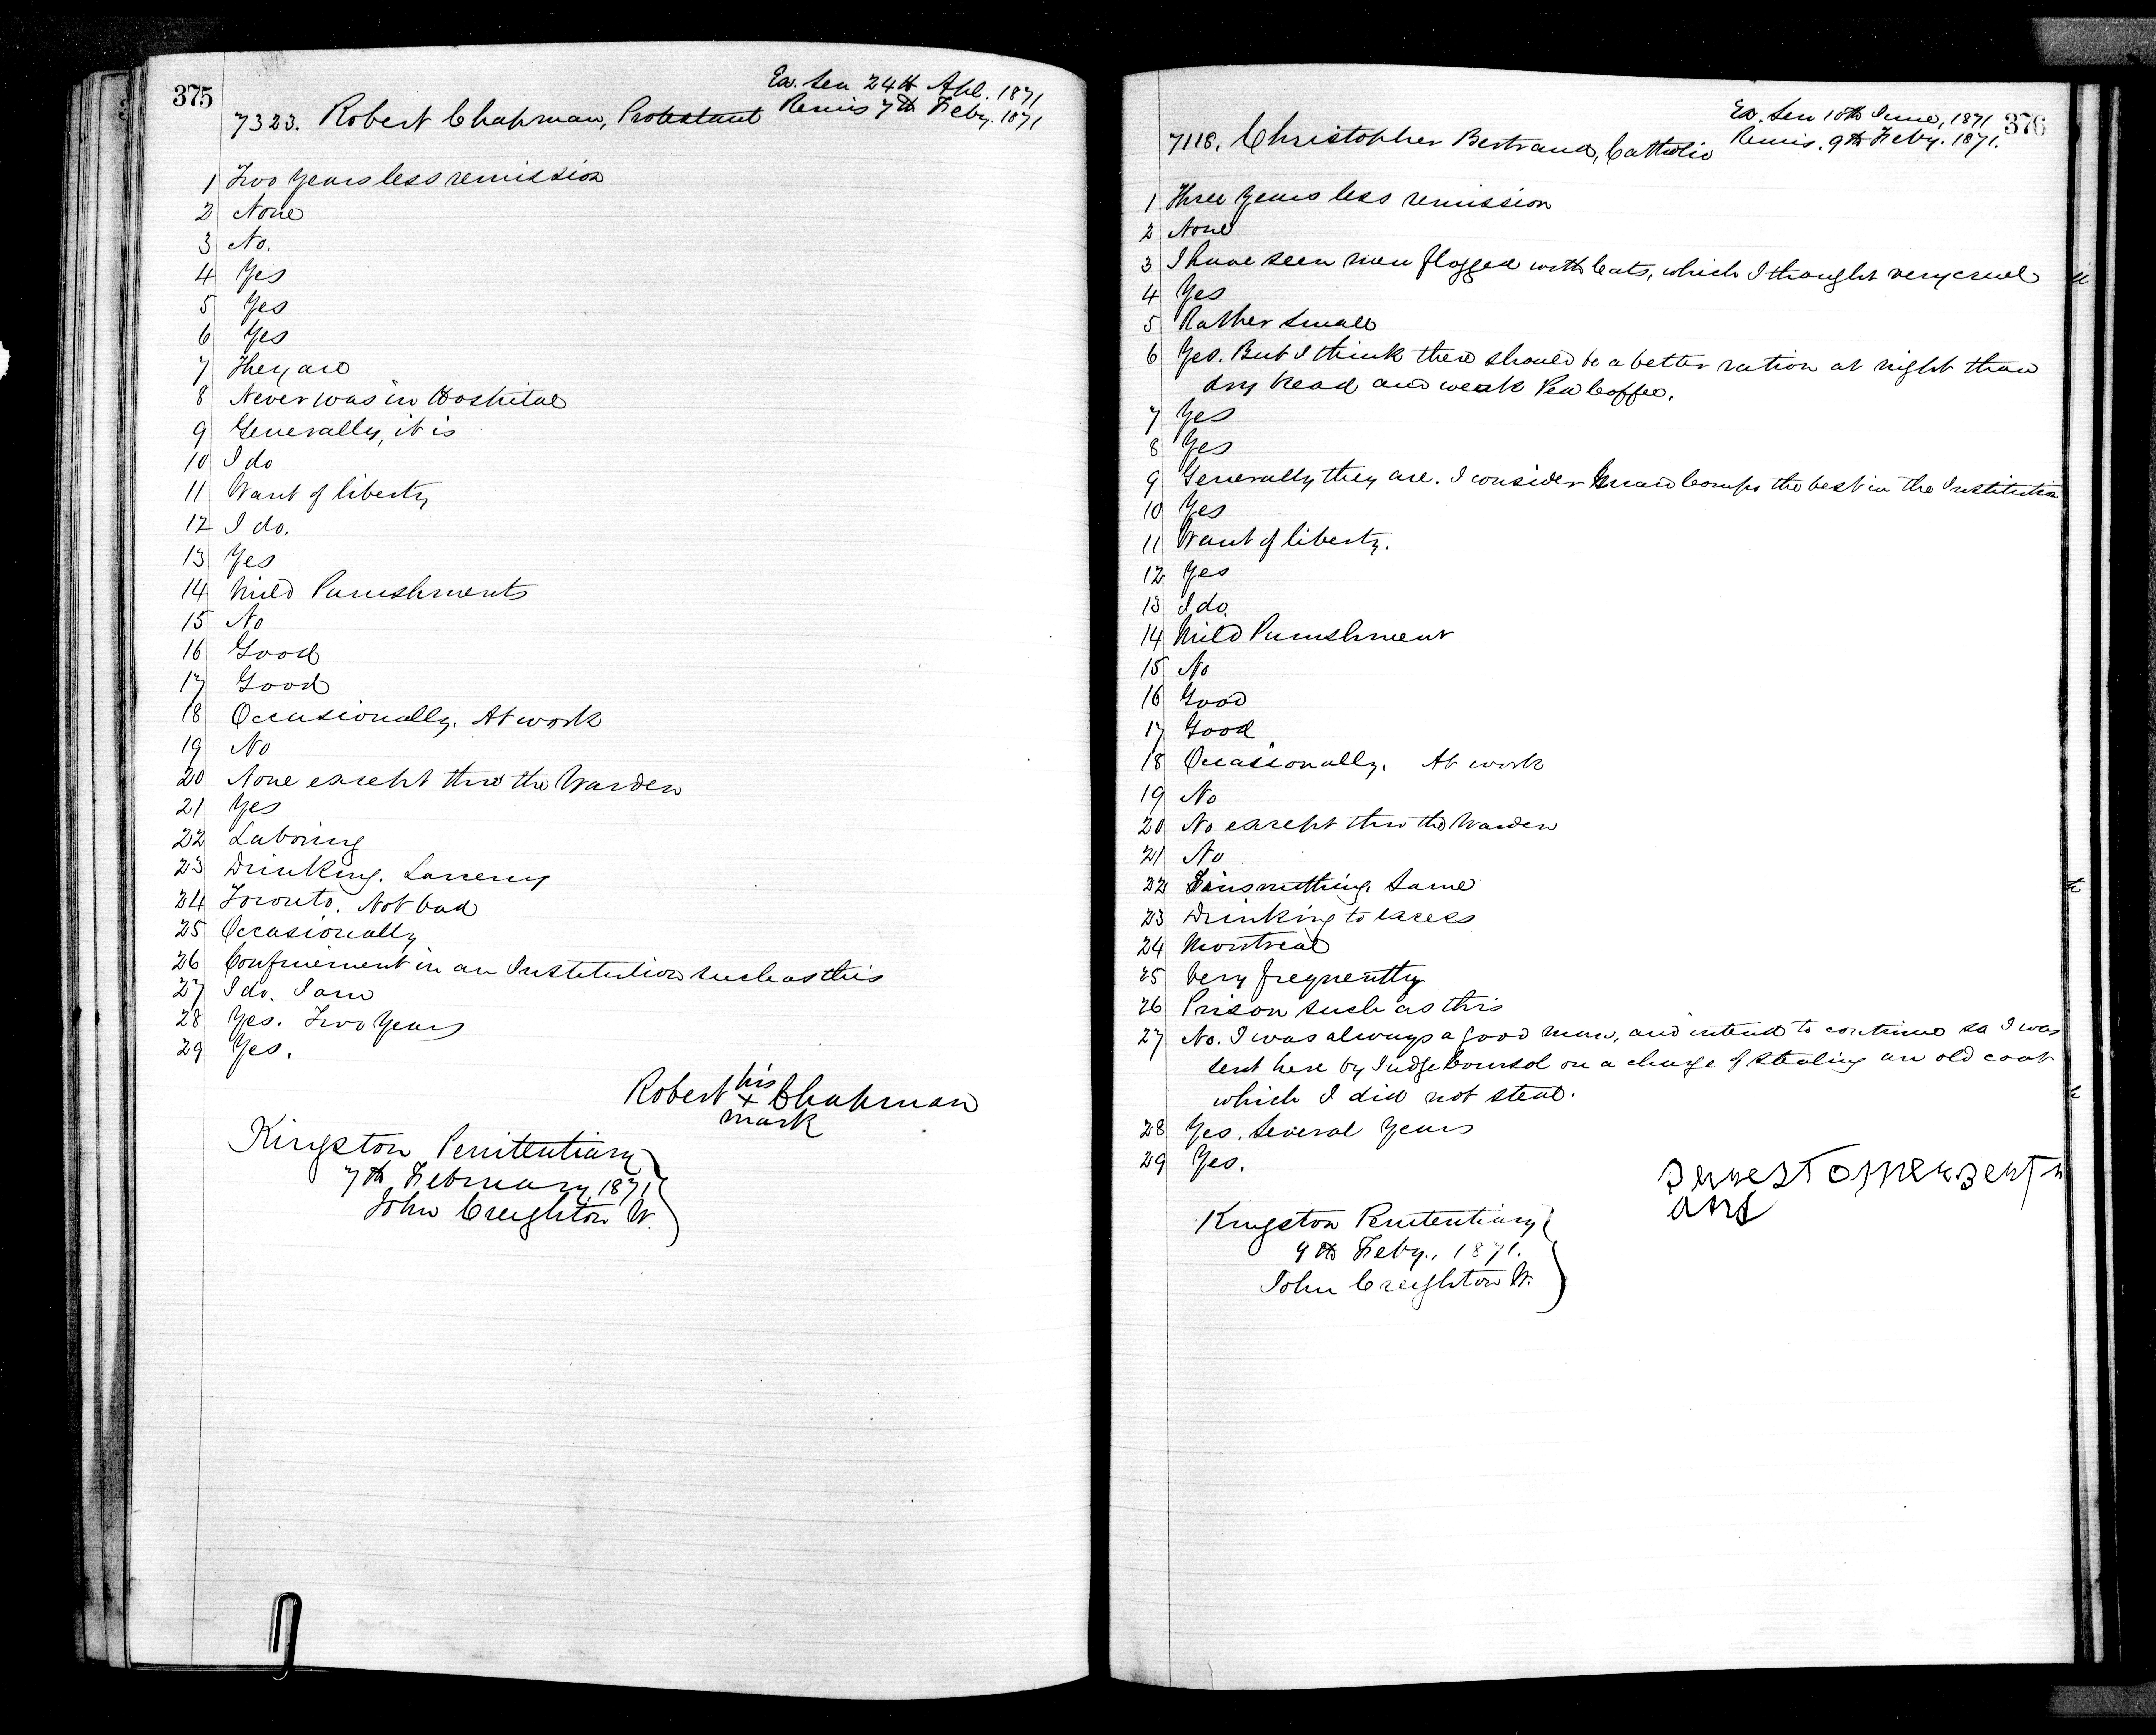 375
Ex. Sen 24th Apl. 1871
7323. Robert Chapman, Protestant Remis 7th Feby. 1871
1 Two years less remission
2 None
3 No.
4 Yes
5 Yes
6 Yes
7 They are
8 Never was in Hospital
9 Generally, it is
10 I do
11 Want of liberty
12 I do.
13 Yes
14 Mild Punishments
15 No
16 Good
17 Good
18 Occasionally. At work
19 No
20 None except thro the Warden
21 Yes
22 Laboring
23 Drinking. Larceny
24 Toronto. Not bad
25 Occasionally
26 Confinement in an Institution such as this
27 I do. I am
28 Yes. Two Years
29 Yes.
Robert his + mark Chapman
Kingston Penitentiary
7th February, 1871
John Creighton W.
376
Ex. Sen 10th June, 1871
7118. Christopher Bertrand, Catholic Remis. 9th Feby. 1871.
1 Three Years less remission
2 None
3 I have seen men flogged with Cats, which I thought very cruel
4 Yes
5 Rather Small
6 Yes. But I think there should be a better ration at night than
dry bread and weak Pea Coffee.
7 Yes
8 Yes
9 Generally they are. I consider the best in the Institution
10 Yes
11 Want of liberty.
12 Yes
13 I do.
14 Mild Punishment
15 No
16 Good
17 Good
18 Occasionally. At work
19 No
20 No except thro the Warden
21 No
22 Tinsmithing. Same
23 Drinking to excess
24 Montreal
25 Very frequently
26 Prison such as this
27 No. I was always a good man, and intend to continue so I was
sent here by Judge Coursol on a charge of stealing an old coat
which I did not steal.
28 Yes. Several Years
29 Yes.
Kingston Penitentiary
9th Feby., 1871.
John Creighton W.